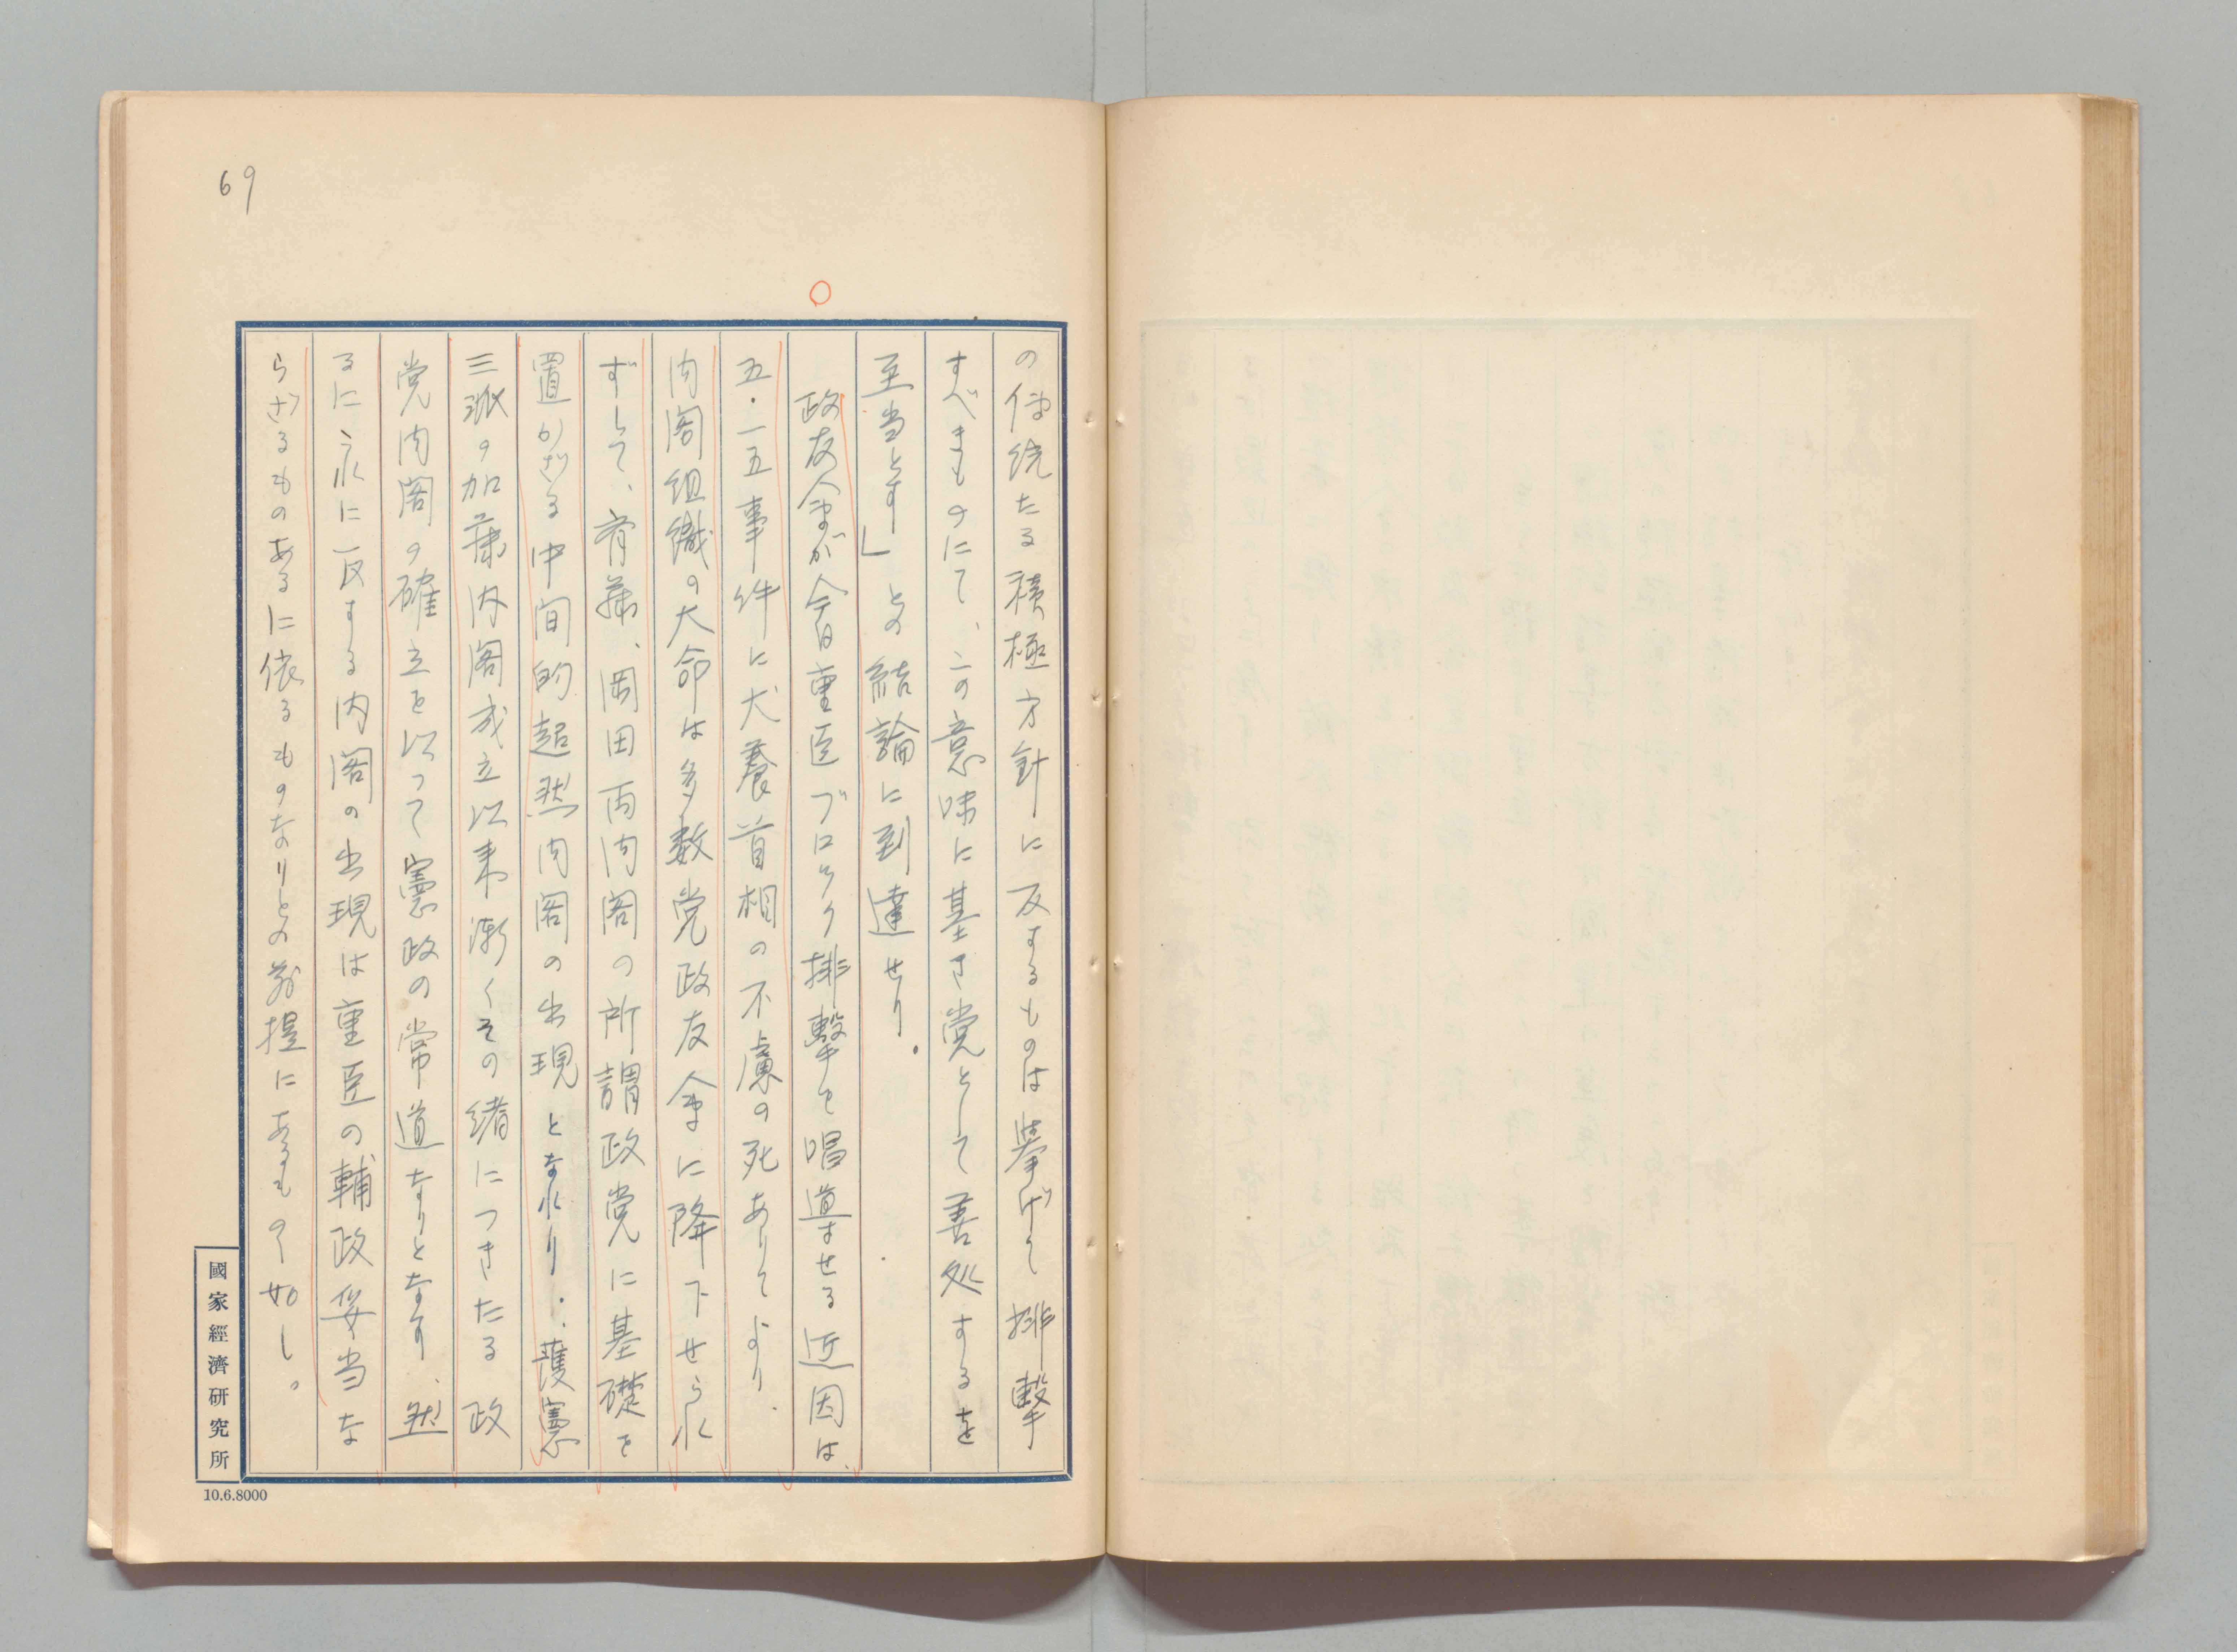 69
の伝統たる積極方針に反するものは挙げて排撃
すべきものにて、この意味に基き党として善処するを
至当とす」との結論に到達せり.
政友会が今日重臣ブロック排撃を唱導せる近因は、
五・一五事件に犬養首相の不慮の死ありてより.
内閣組織の大命は多数党政友会に降下せられ
ずして、斎藤、岡田両内閣の所謂政党に基礎を
置かざる中間的超然内閣の出現となれり.護憲
三派の加藤内閣成立以来漸くその緒につきたる政
党内閣の確立を以つて憲政の常道なりとなす、然
るに之れに反する内閣の出現は重臣の輔政妥当な
らざるものあるに依るものなりとの前提にあるものゝ如し。
國家經濟研究所
10.6.8000